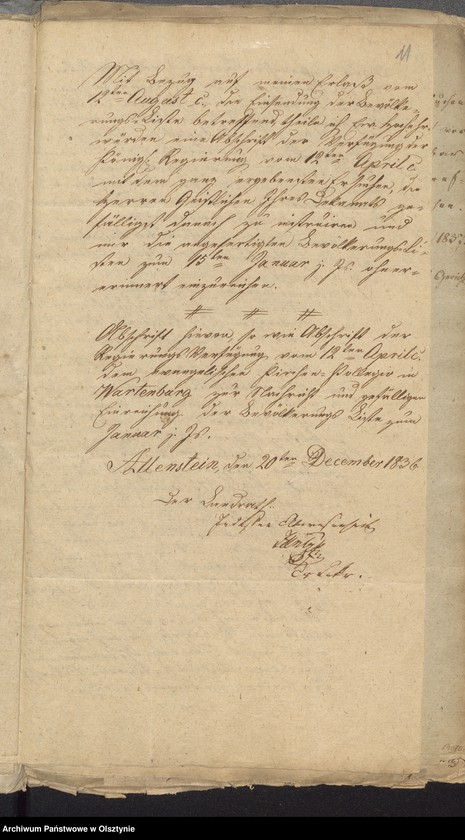 11
Mit Bezug auf meinen Erlaß vom
12ten August c., die Einsendung der Bevölke-
rungs Liste betreffend, theile ich Ew. Hochehr-
würden eine Abschrift der Verfügung der
Königl. Regierung vom 12ten April c.
mit dem ganz ergebensten Ersuchen, die
Herren Geistlichen Ihres Dekanats ge-
fälligst danach zu instruiren und
mir die angefertigten Bevölkerungsli-
sten zum 15ten Januar j. Js. ohner-
innert einzureichen.
Abschrift hievon, so wie Abschrift der
Regierungs Verfügung vom 12ten April c.
dem evangelischen Kirchen-Collegio in
Wartenburg zur Nachricht und gefälligen
Einreichung der Bevölkerungs Liste zum
Januar j. Js.
Allenstein, den 20ten December 1836
Der Landrath.
Archiwum Państwowe w Olsztynie